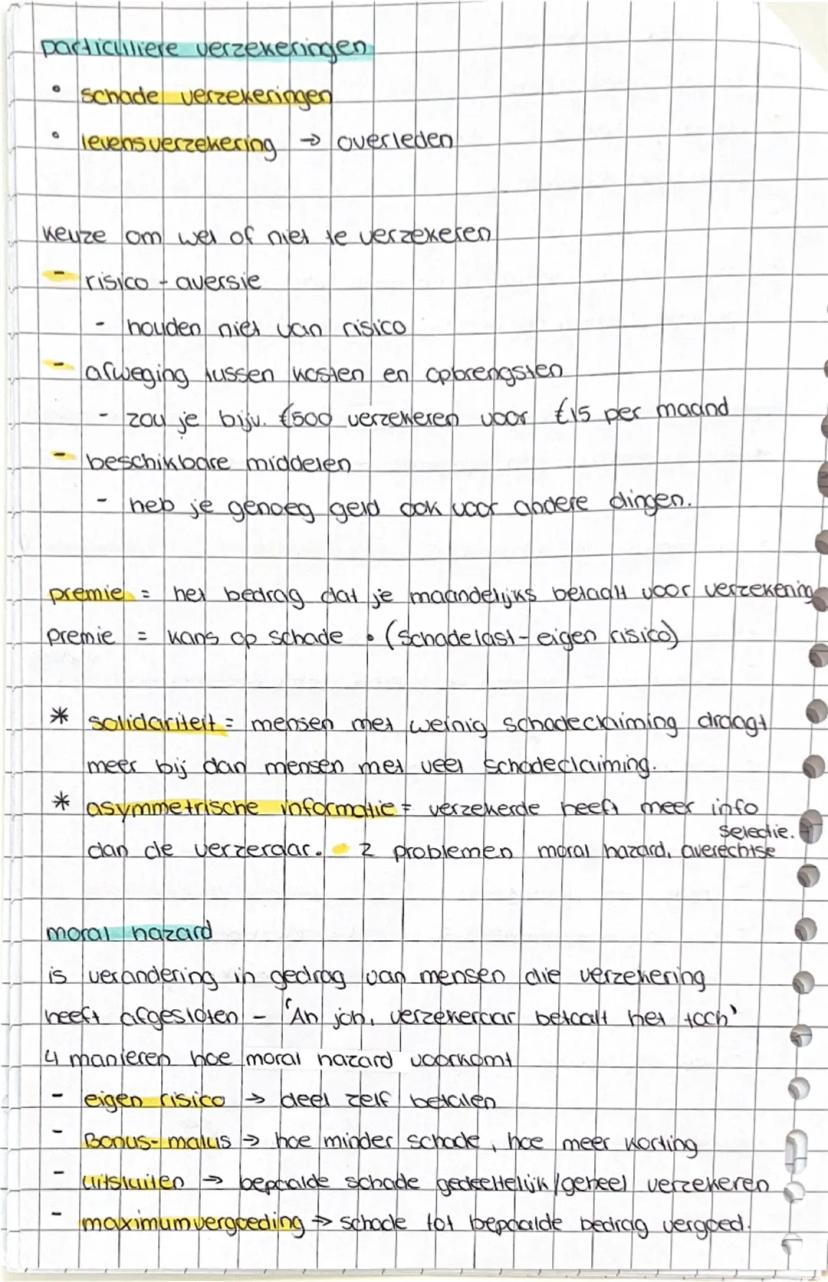 particuliere verzekeringen
• schade verzekeringen
• levensverzekering → overleden
keuze om wel of niet te verzekeren
- risico - aversie
- houden niet van risico
- afweging tussen kosten en opbrengsten
- zou je bijv. €500 verzekeren voor €15 per maand
- beschikbare middelen
- heb je genoeg geld ook voor andere dingen.
premie = het bedrag dat je maandelijks betaalt voor verzekering
premie = kans op schade • (schadelast - eigen risico)
* solidariteit = mensen met weinig schadeclaiming draagt
meer bij dan mensen met veel schadeclaiming.
* asymmetrische informatie = verzekerde heeft meer info
selectie.
dan de verzerdar. - 2 problemen moral hazard, averechtse
moral hazard
is verandering in gedrag van mensen die verzekering
heeft afgesloten - 'Ah joh, verzekeraar betaalt het toch'
4 manieren hoe moral hazard voorkomt
- eigen risico → deel zelf betalen
- Bonus-malus → hoe minder schade, hoe meer korting
- uitsluiten → bepaalde schade gedeeltelijk/geheel verzekeren
- maximumvergoeding → schade tot bepaalde bedrag vergoed.